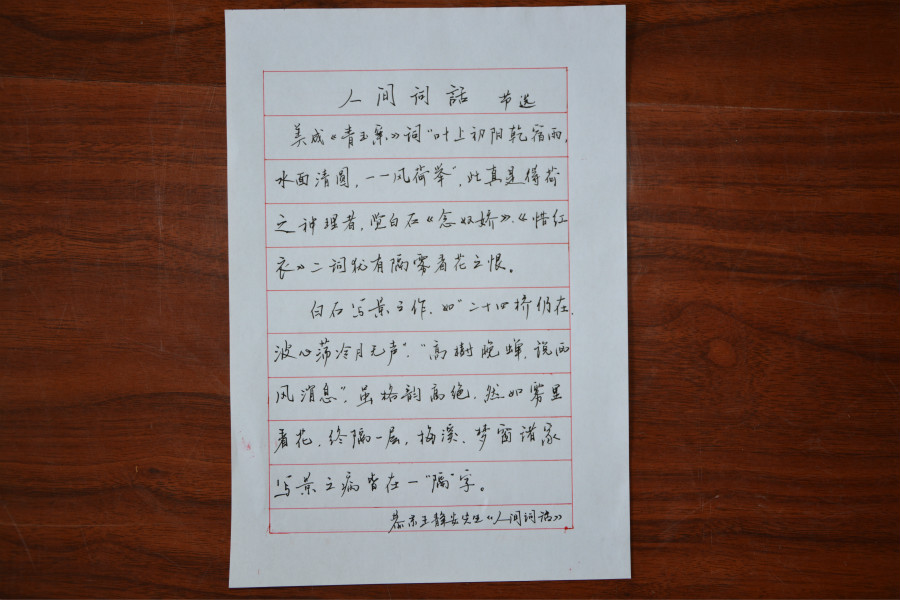 人间词話 节选
美成《青玉案》词"叶上初阳乾宿雨,
水面清圆,一一风荷举",此真是得荷
之神理者,觉白石《念奴娇》、《惜红
衣》二词犹有隔雾看花之恨。
白石写景之作,如"二十四桥仍在,
波心荡冷月无声","高樹晚蝉,说西
风消息",虽格韵高绝,然如雾里
看花,终隔一层,梅溪、梦窗诸家
写景之病皆在一"隔"字。
录王静安先生《人间词话》